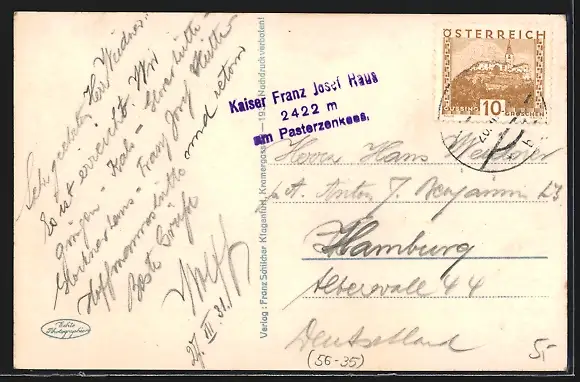 Sehr geehrter Herr Weidner!
Es ist erreicht. Wir
gingen - Kals -
Glocknerhaus - Franz Josef Hütte
Hoffmannshütte und retour
Beste Grüße
Wolff
27. III. 31.
Echte Photographie
Verlag: Franz Schilcher Klagenfurt, Kramergasse Nachdruck verboten!
Kaiser Franz Josef Haus
2422 m
am Pasterzenkees.
ÖSTERREICH
GÜSSING 10 GROSCHEN
Herrn Hans Weidner
Anton J. Benjamin
Hamburg
Alterwall 44
Deutschland
(56-35)
5,-